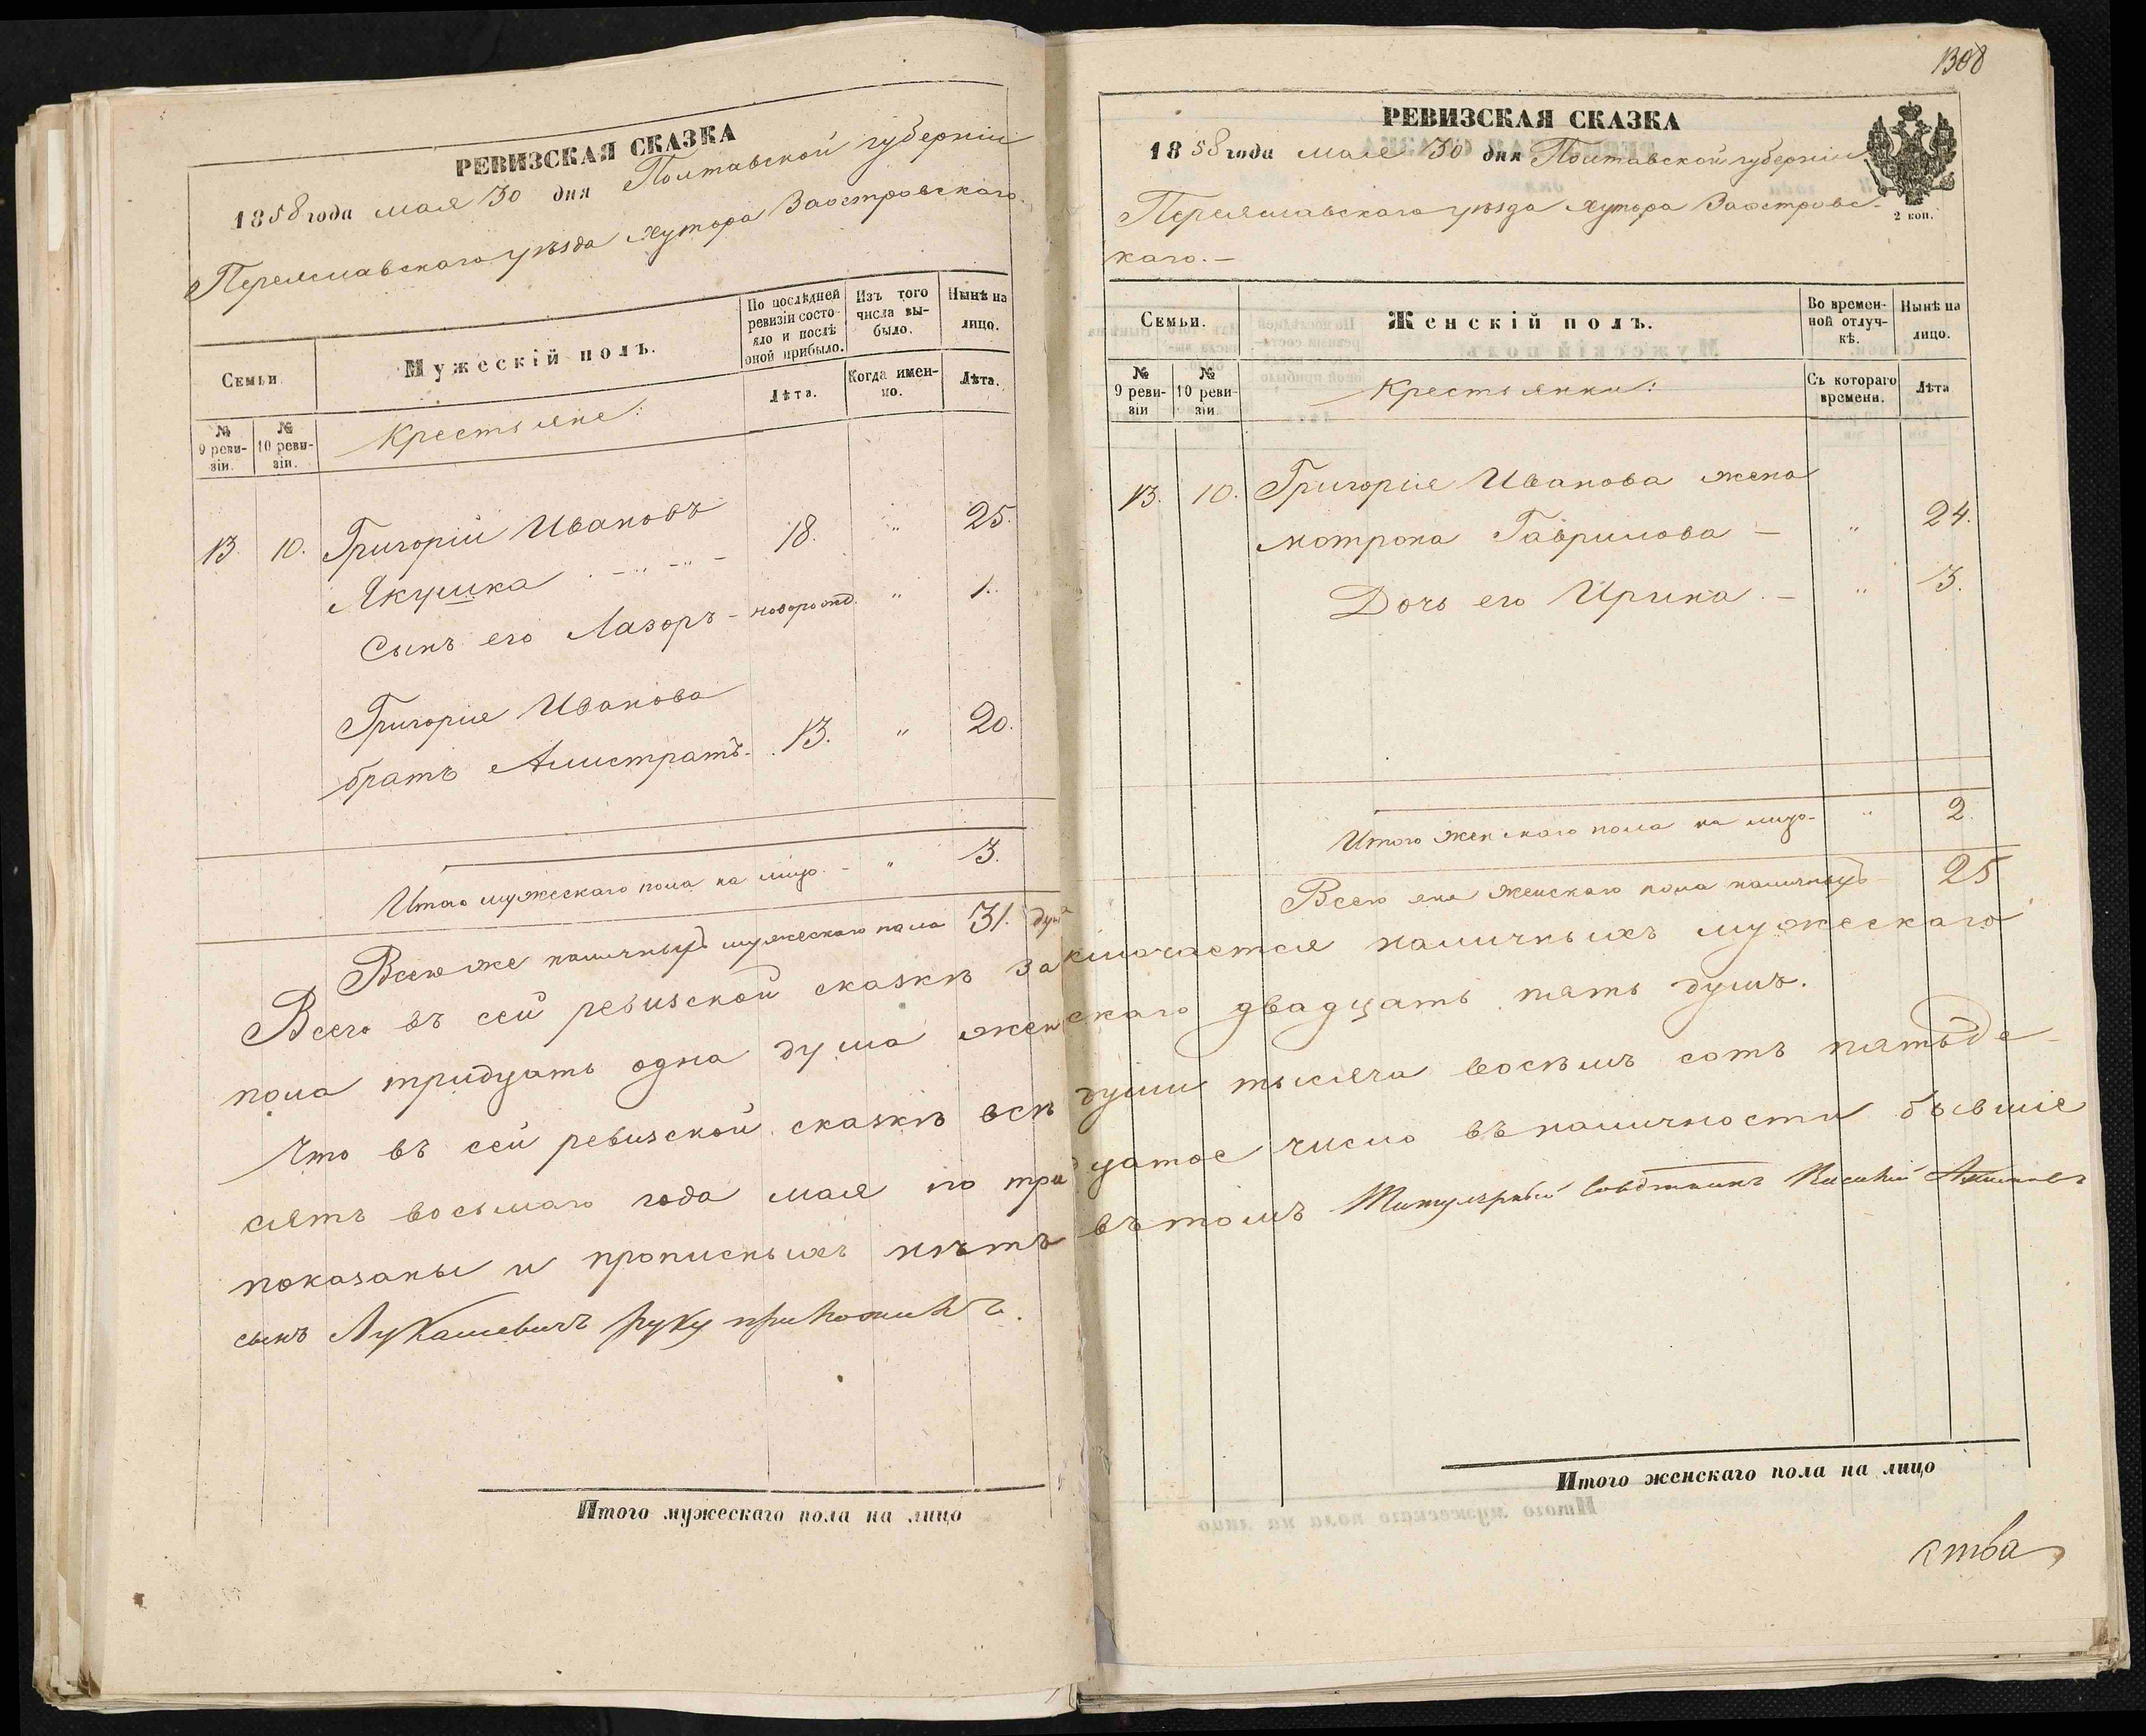 РЕВИЗСКАЯ СКАЗКА
1858 года мая 30 дня Полтавской губерніи
Переяславскаго уѣзда хутора Заостровскаго.
Семьи.
Мужескій полъ.
По послѣдней ревизіи состояло и послѣ оной прибыло.
Изъ того числа выбыло.
Нынѣ на лицо.
№ 9 ревизіи.
№ 10 ревизіи.
Крестьяне:
Лѣта.
Когда именно.
Лѣта.
13. 10. Григорій Ивановъ
Якушка - " - " - 18. " 25.
Сынъ его Лазоръ - новорожд. " 1.
Григорія Иванова
братъ Алистратъ. 13. " 20.
Итого мужескаго пола на лицо - " 3.
Всего же наличныхъ мужескаго пола 31. душа
Всего въ сей ревизской сказкѣ за
пола тридцать одна душа жен
Что въ сей ревизской сказкѣ всѣ
сятъ восьмаго года мая по трид
показаны и прописныхъ нѣтъ
сынъ Лукашевичъ руку приложилъ.
Итого мужескаго пола на лицо
1308
РЕВИЗСКАЯ СКАЗКА
1858 года мая 30 дня Полтавской губерніи
2 коп.
Переяславскаго уѣзда хутора Заостровс-
каго.-
Семьи.
Женскій полъ.
Во временной отлучкѣ.
Нынѣ на лицо.
№ 9 ревизіи
№ 10 ревизіи
Крестьянки:
Съ котораго времени.
Лѣта
13. 10. Григорія Иванова жена
Мотрона Гаврилова - " 24.
Дочь его Ирина. - " 3.
Итого женскаго пола на лицо - " 2.
Всего же женскаго пола наличныхъ 25
ключается наличныхъ мужескаго
скаго двадцать пять душъ.
души тысяча восѣмъ сотъ пятьде-
цатое число въ наличности бывшіе
въ томъ Титулярный Совѣтникъ
Итого женскаго пола на лицо
ства